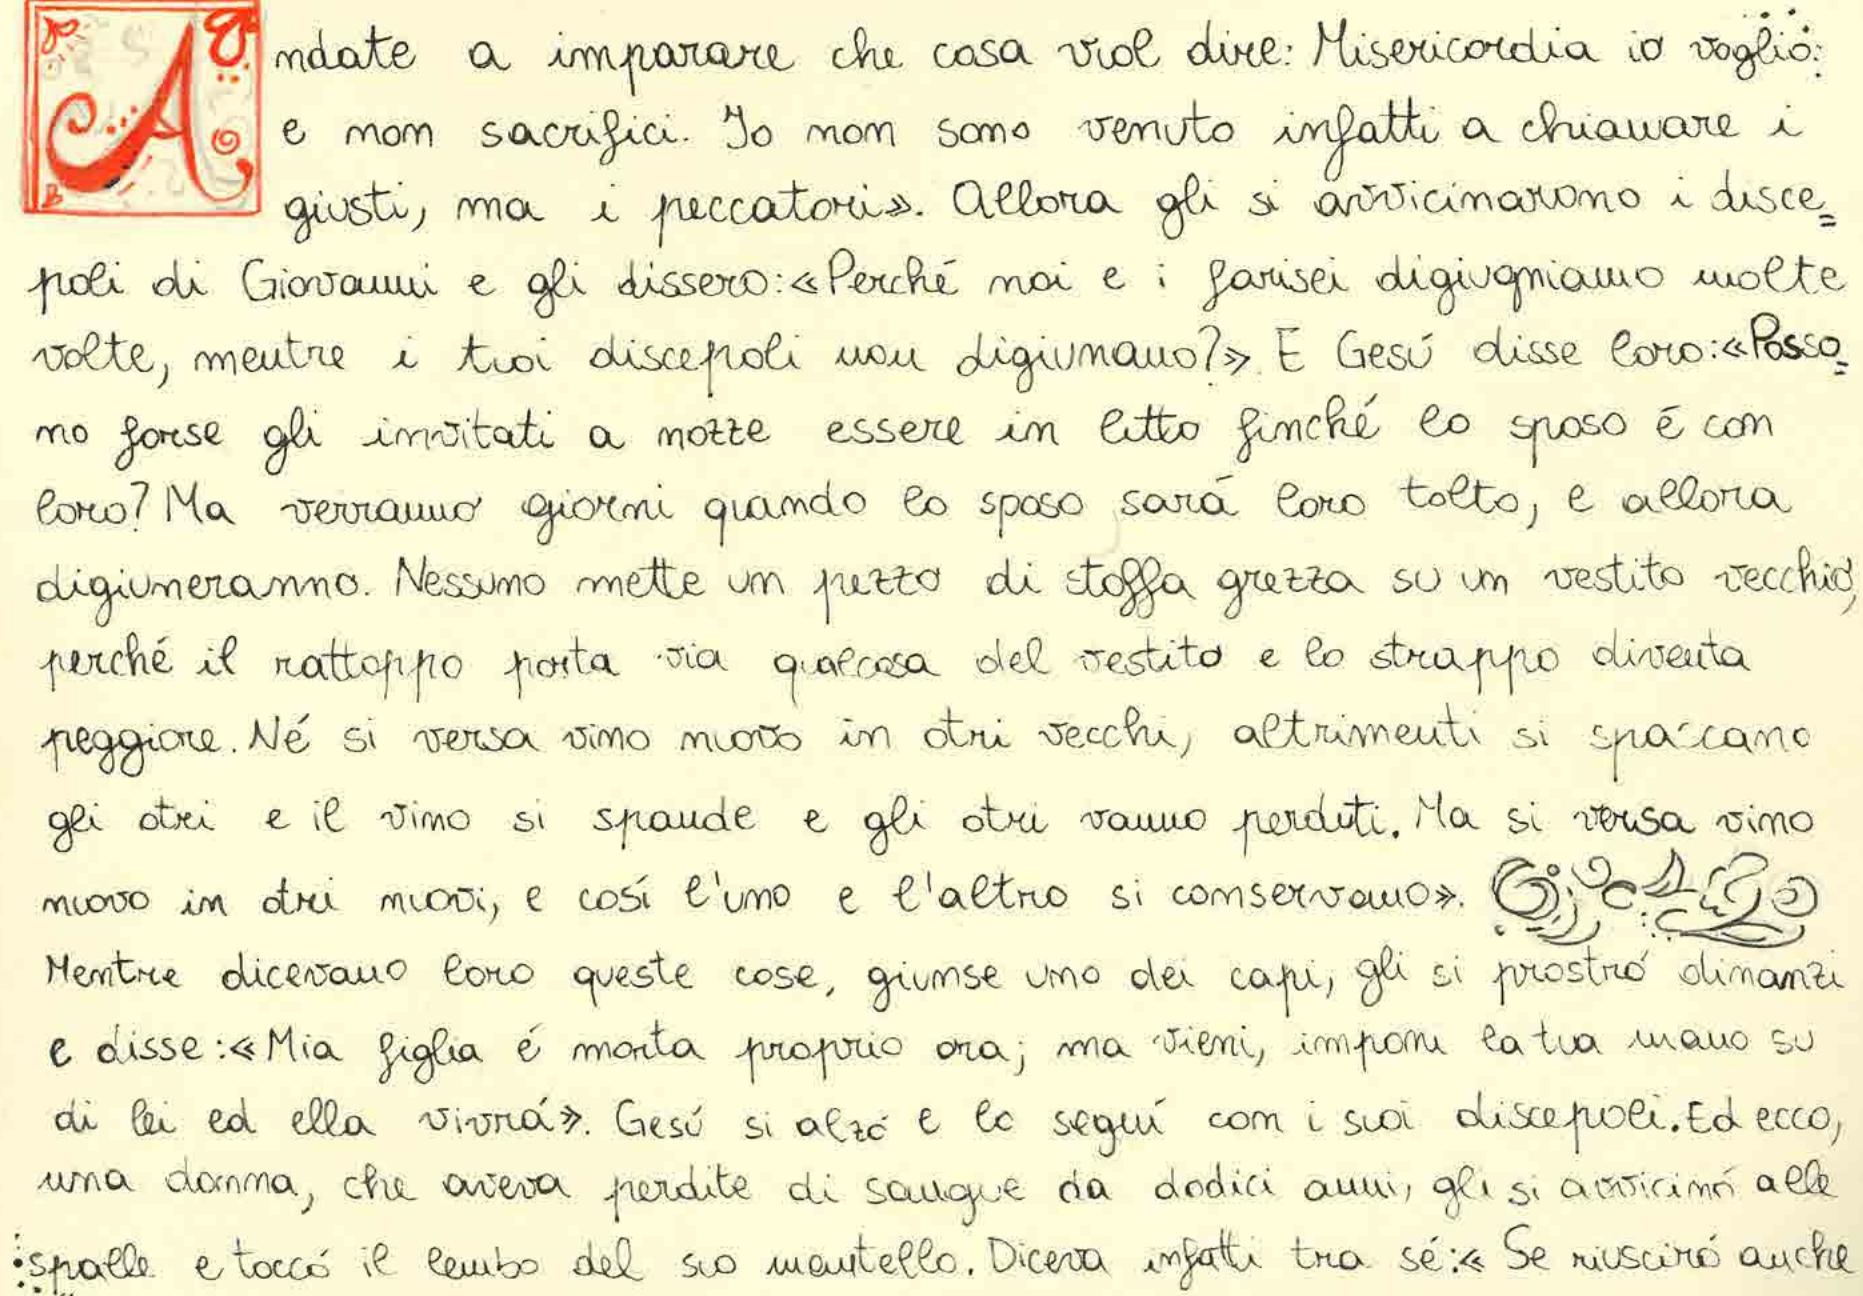 Andate a imparare che cosa vuol dire: Misericordia io voglio
e non sacrifici. Io non sono venuto infatti a chiamare i
giusti, ma i peccatori». Allora gli si avvicinarono i disce=
poli di Giovanni e gli dissero: «Perché noi e i farisei digiugniamo molte
volte, mentre i tuoi discepoli non digiunano?» E Gesú disse loro: «Posso=
no forse gli invitati a nozze essere in lutto finché lo sposo é con
loro? Ma verranno giorni quando lo sposo sará loro tolto, e allora
digiuneranno. Nessuno mette un pezzo di stoffa grezza su un vestito vecchio,
perché il rattoppo porta via qualcosa del vestito e lo strappo diventa
peggiore. Né si versa vino nuovo in otri vecchi, altrimenti si spaccano
gli otri e il vino si spande e gli otri vanno perduti. Ma si versa vino
nuovo in otri nuovi, e cosí l'uno e l'altro si conservano».
Mentre dicevano loro queste cose, giunse uno dei capi, gli si prostró dinanzi
e disse: «Mia figlia é morta proprio ora; ma vieni, imponi la tua mano su
di lei ed ella vivrá». Gesú si alzó e lo seguí con i suoi discepoli. Ed ecco,
una donna, che aveva perdite di sangue da dodici anni, gli si avvicinó alle
spalle e toccó il lembo del suo mantello. Diceva infatti tra sé: « Se riusciró anche